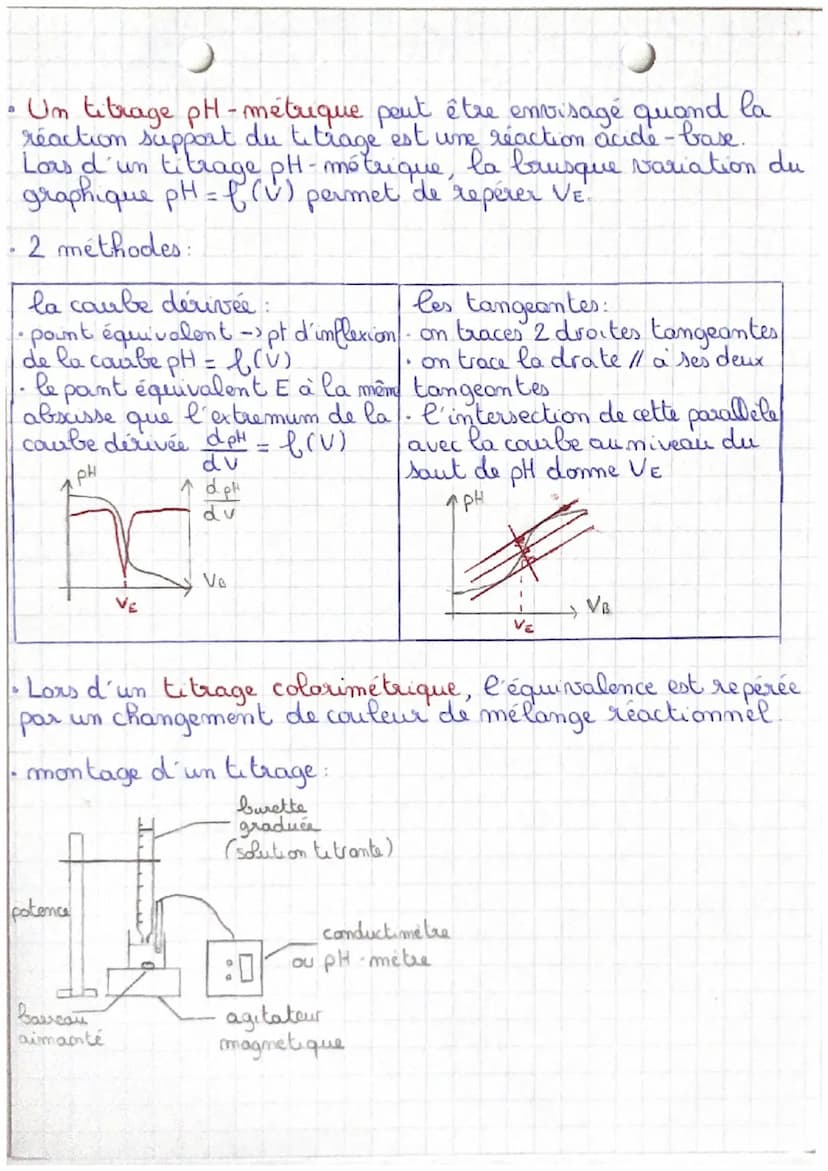 • Un titrage pH-métrique peut être envisagé quand la
réaction support du titrage est une réaction acide-base.
Lors d'un titrage pH-métrique, la brusque variation du
graphique pH = f(V) permet de repérer VE.
• 2 méthodes :
la courbe dérivée :
• point équivalent -> pt d'inflexion
de la courbe pH = f(V)
• le point équivalent E à la mêm
abscisse que l'extremum de la
courbe dérivée dpH/dV = f(V)
pH
dpH/dV
VB
VE
les tangeantes :
• on traces 2 droites tangeantes
• on trace la droite // à ses deux
tangeantes
• l'intersection de cette parallèle
avec la courbe au niveau du
saut de pH donne VE
pH
VB
VE
• Lors d'un titrage colorimétrique, l'équivalence est repérée
par un changement de couleur de mélange réactionnel.
• montage d'un titrage :
burette
graduée
(solution titrante)
potence
conductimètre
ou pH-mètre
barreau
aimanté
agitateur
magnetique